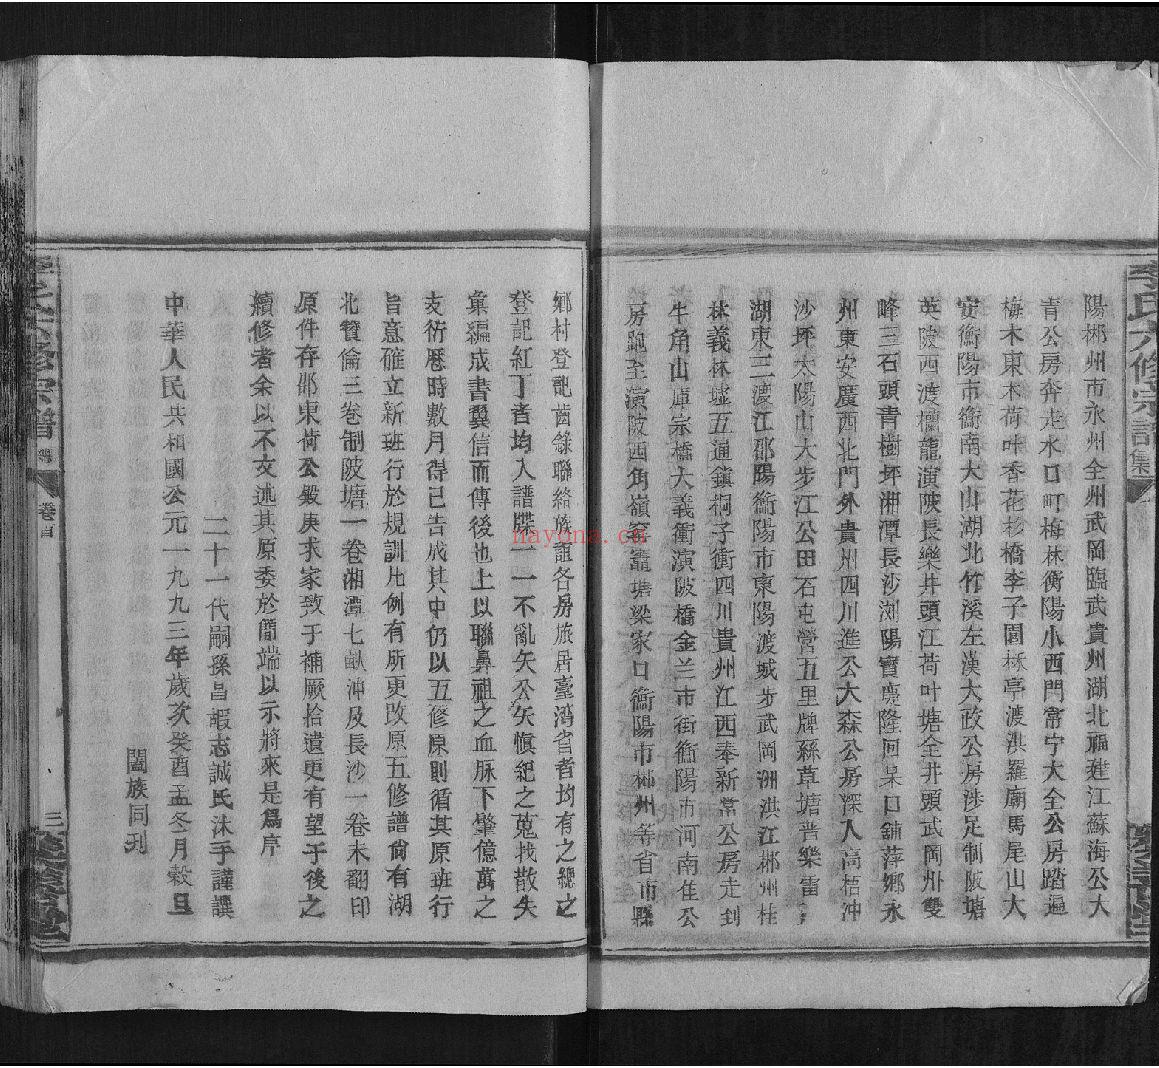 陽郴州市永州全州武岡臨武貴州湖北福建江蘇海公大
青公房奔走水口町梅林衡陽小西門常宁大全公房踏遍
梅木東木荷叶香花杉橋李子園林亭渡洪羅廟馬尾山大
安衡陽市衡南大山湖北竹溪左漢大政公房涉足制陂塘
英陂西渡檀龍演陂長樂井頭江荷叶塘全井頭武岡州雙
峰三石頭青樹坪湘潭長沙浏陽寶慶隆回杲口鋪萍鄉永
州東安廣西北門外貴州四川進公大森公房深入高梧冲
沙坪太陽山大步江公田石屯營五里牌蘇草塘普樂雷
湖東三渡江邵陽衡陽市東陽渡城步武岡洲洪江郴州桂
林義林墟五通鎮祠子衝四川貴州江西奉新常公房走到
牛角山庫宗橋大義衝演陂橋金兰市街衡陽市河南佳公
房跑至演陂西角嶺窑塘梁家口衡陽市郴州等省市縣
鄉村登訖齒錄聯絡族誼各房旅居臺湾省者均有之總之
登記紅丁者均入譜牒一一不亂矢公矢慎紀之蒐找散失
彙編成書翼信而傳後也上以聯鼻祖之血脉下肇億萬之
支衍歷時數月得已告成其中仍以五修原則循其原班行
旨意確立新班行於規訓凡例有所更改原五修譜尚有湖
北贊倫三卷制陂塘一卷湘潭七畝冲及長沙一卷未翻印
原件存邵東荷公毅庚求家致于補厥拾遺更有望于後之
續修者余以不文述其原委於簡端以示將來是爲序
二十一代嗣孫昌嘏志誠氏沐手謹譔
中華人民共和國公元一九九三年歲次癸酉孟冬月穀旦
闔族同刋
李氏六修宗譜
卷首
三
nayona.cn